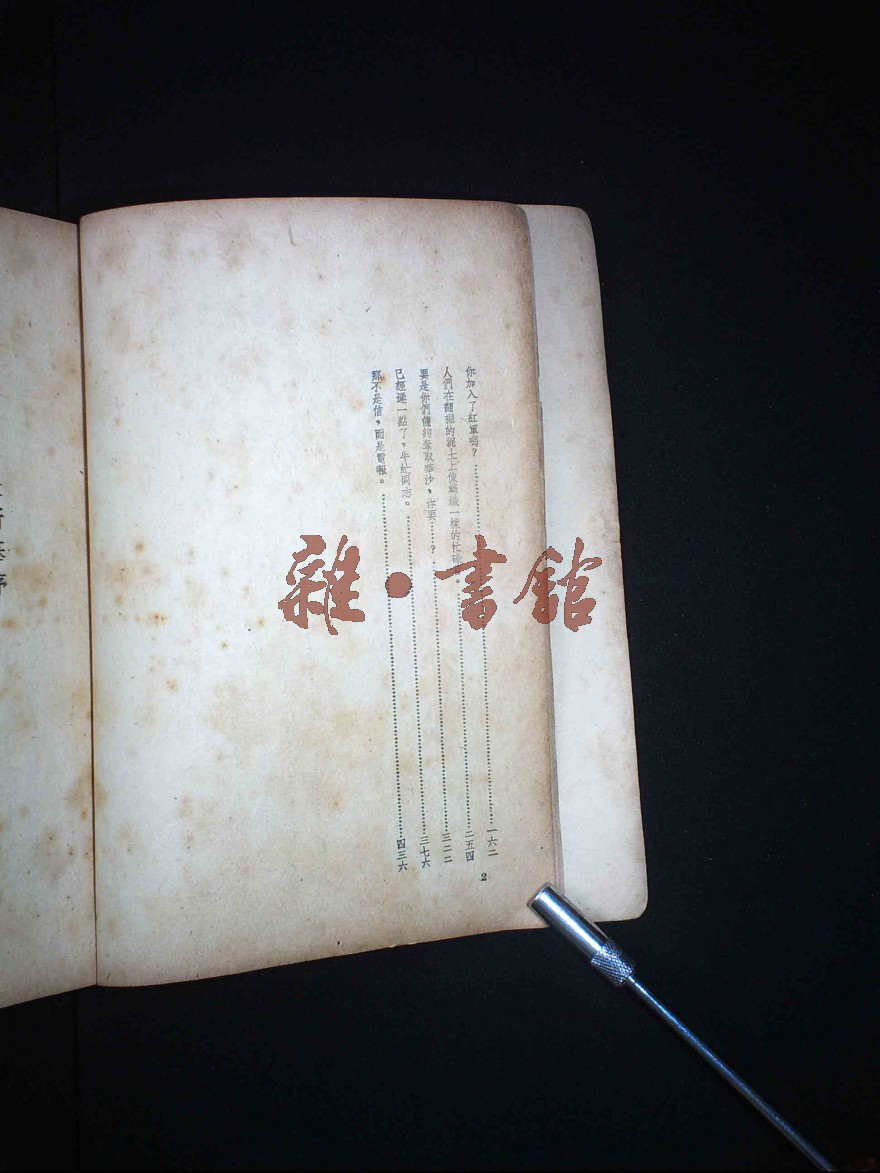 你加入了紅軍嗎?……一六二
人們在翻掘的泥土上像螞蟻一樣的忙碌。……二五四
要是你們能夠奪取華沙,你要……?……三二二
已經遲一點了,牛虻同志。……三七六
那不是信,而是電報。……四三六
2
雜·書館